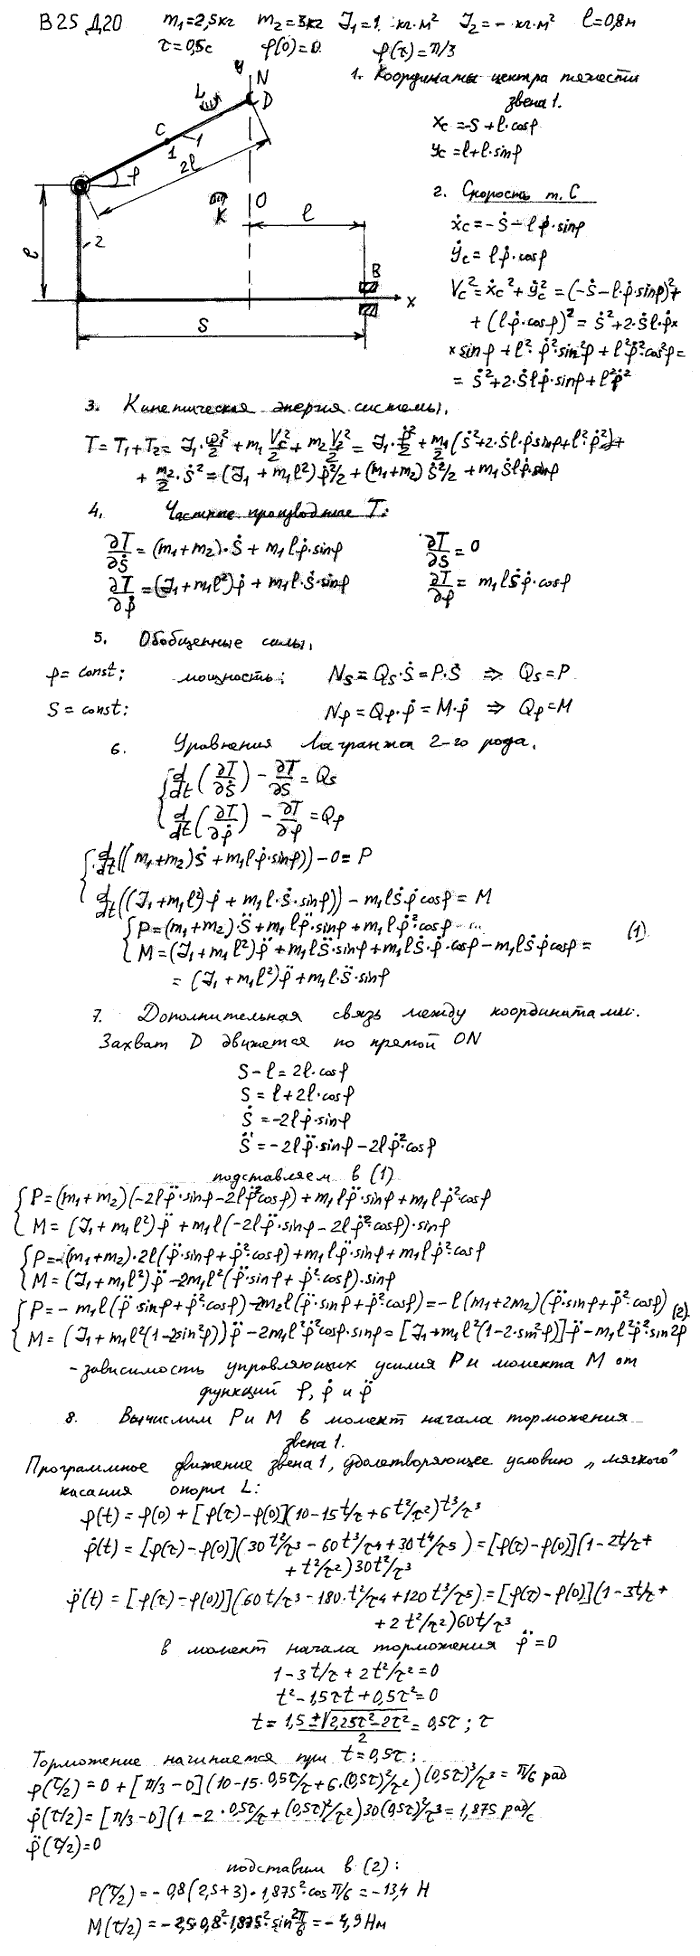 В25 Д20 m₁=2,5кг m₂=3кг J₁=1. кг·м² J₂=– кг·м² ℓ=0,8м
τ=0,5с φ(0)=0. φ(τ)=π/3
y N
L D
C
1 1
2ℓ
φ
O
K
ℓ
ℓ
2
B
x
S
1. Координаты центра тяжести
звена 1.
x_C=-S+ℓ·cosφ
y_C=ℓ+ℓ·sinφ
2. Скорость т. С
ẋ_C=-Ṡ-ℓφ̇·sinφ
ẏ_C=ℓφ̇·cosφ
V_C²=ẋ_C²+ẏ_C²=(-Ṡ-ℓ·φ̇·sinφ)²+
+(ℓφ̇·cosφ)²=Ṡ²+2·Ṡℓ·φ̇×
×sinφ+ℓ²·φ̇²·sin²φ+ℓ²φ̇²·cos²φ=
=Ṡ²+2·Ṡℓφ̇·sinφ+ℓ²φ̇²
3. Кинетическая энергия системы.
T=T₁+T₂=J₁·ω₁²/2+m₁V_C²/2+m₂V₂²/2=J₁·φ̇²/2+m₁/2(Ṡ²+2·Ṡℓ·φ̇sinφ+ℓ²·φ̇²)+
+m₂/2·Ṡ²=(J₁+m₁ℓ²)φ̇²/2+(m₁+m₂)Ṡ²/2+m₁Ṡℓφ̇·sinφ
4. Частные производные T:
∂T/∂Ṡ=(m₁+m₂)·Ṡ+m₁ℓφ̇·sinφ ∂T/∂S=0
∂T/∂φ̇=(J₁+m₁ℓ²)φ̇+m₁ℓ·Ṡ·sinφ ∂T/∂φ=m₁ℓṠφ̇·cosφ
5. Обобщенные силы.
φ=const; мощность: N_S=Q_S·Ṡ=P·Ṡ ⇒ Q_S=P
S=const: N_φ=Q_φ·φ̇=M·φ̇ ⇒ Q_φ=M
6. Уравнения Лагранжа 2-го рода.
{d/dt(∂T/∂Ṡ)-∂T/∂S=Q_S
{d/dt(∂T/∂φ̇)-∂T/∂φ=Q_φ
{d/dt((m₁+m₂)Ṡ+m₁ℓφ̇·sinφ))-0=P
{d/dt((J₁+m₁ℓ²)·φ̇+m₁ℓ·Ṡ·sinφ))-m₁ℓṠφ̇cosφ=M
{P=(m₁+m₂)·S̈+m₁ℓφ̈·sinφ+m₁ℓφ̇²·cosφ
{M=(J₁+m₁ℓ²)φ̈+m₁ℓS̈·sinφ+m₁ℓṠ·φ̇·cosφ-m₁ℓṠφ̇cosφ= (1)
=(J₁+m₁ℓ²)φ̈+m₁ℓ·S̈·sinφ
7. Дополнительная связь между координатами.
Захват D движется по прямой ON
S-ℓ=2ℓ·cosφ
S=ℓ+2ℓ·cosφ
Ṡ=-2ℓφ̇·sinφ
S̈=-2ℓφ̈·sinφ-2ℓφ̇²·cosφ
подставляем в (1)
{P=(m₁+m₂)(-2ℓφ̈·sinφ-2ℓφ̇²cosφ)+m₁ℓφ̈·sinφ+m₁ℓφ̇²cosφ
{M=(J₁+m₁ℓ²)φ̈+m₁ℓ(-2ℓφ̈·sinφ-2ℓφ̇²cosφ)·sinφ
{P=-(m₁+m₂)·2ℓ(φ̈·sinφ+φ̇²·cosφ)+m₁ℓφ̈·sinφ+m₁ℓφ̇²cosφ
{M=(J₁+m₁ℓ²)φ̈-2m₁ℓ²(φ̈·sinφ+φ̇²·cosφ)·sinφ
{P=-m₁ℓ(φ̈·sinφ+φ̇²cosφ)-2m₂ℓ(φ̈·sinφ+φ̇²cosφ)=-ℓ(m₁+2m₂)(φ̈·sinφ+φ̇²·cosφ) (2)
{M=(J₁+m₁ℓ²(1-2sin²φ))φ̈-2m₁ℓ²φ̇²cosφ·sinφ=[J₁+m₁ℓ²(1-2·sin²φ)]φ̈-m₁ℓ²φ̇²·sin2φ
-зависимость управляющих усилия P и момента M от
функций φ, φ̇ и φ̈
8. Вычислим P и M в момент начала торможения
звена 1.
Программное движение звена 1, удовлетворяющее условию „мягкого"
касания опоры L:
φ(t)=φ(0)+[φ(τ)-φ(0)](10-15t/τ+6t²/τ²)t³/τ³
φ̇(t)=[φ(τ)-φ(0)](30t²/τ³-60t³/τ⁴+30t⁴/τ⁵)=[φ(τ)-φ(0)](1-2t/τ+
+t²/τ²)30t²/τ³
φ̈(t)=[φ(τ)-φ(0)](60t/τ³-180·t²/τ⁴+120t³/τ⁵)=[φ(τ)-φ(0)](1-3t/τ+
+2t²/τ²)60t/τ³
в момент начала торможения φ̈=0
1-3t/τ+2t²/τ²=0
t²-1,5τt+0,5τ²=0
t=1,5±√2,25τ²-2τ²/2=0,5τ; τ
Торможение начинается при t=0,5τ:
φ(τ/2)=0+[π/3-0](10-15·0,5τ/τ+6·(0,5τ)²/τ²)(0,5τ)³/τ³=π/6 рад
φ̇(τ/2)=[π/3-0](1-2·0,5τ/τ+(0,5τ)²/τ²)30(0,5τ)²/τ³=1,875 рад/с
φ̈(τ/2)=0
подставим в (2):
P(τ/2)=-0,8(2,5+3)·1,875²·cosπ/6=-13,4 Н
M(τ/2)=-2,5·0,8²·1,875²·sin2π/6=-4,9Нм